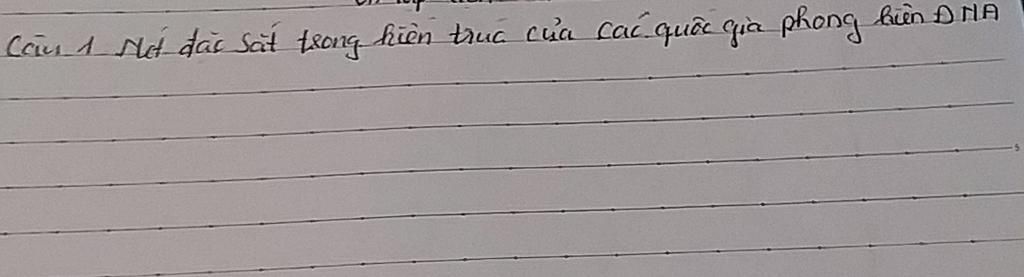 Câu 1 Nét đặc sắt trong kiến trúc của các quốc gia phong kiến ĐNA